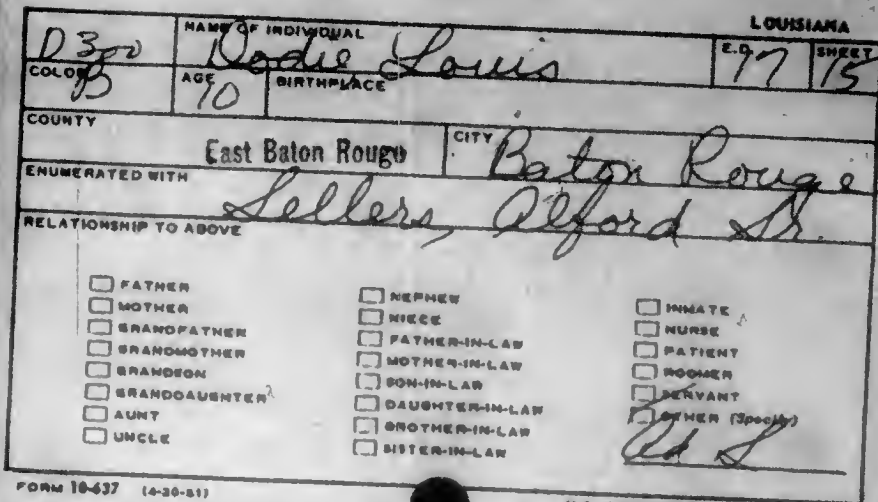 LOUISIANA
D300 NAME OF INDIVIDUAL Dodie Louis E.D. 77 SHEET 15
COLOR B AGE 10 BIRTHPLACE
COUNTY East Baton Rouge CITY Baton Rouge
ENUMERATED WITH Sellers, Alford Sr.
RELATIONSHIP TO ABOVE
FATHER
MOTHER
GRANDFATHER
GRANDMOTHER
GRANDSON
GRANDDAUGHTER
AUNT
UNCLE
NEPHEW
NIECE
FATHER-IN-LAW
MOTHER-IN-LAW
SON-IN-LAW
DAUGHTER-IN-LAW
BROTHER-IN-LAW
SISTER-IN-LAW
INMATE
NURSE
PATIENT
ROOMER
SERVANT
OTHER (Specify)
Ad S
FORM 10-637 (4-30-51)